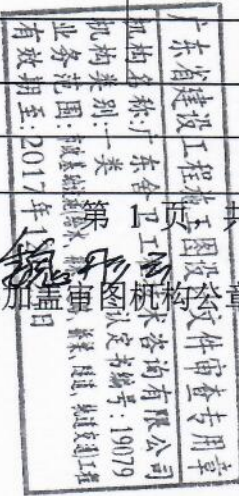 广东省建设工程施工图设计文件审查专用章
机构名称:广东省 卫工 术咨询有限公司
机构类别:一类 认定书编号:19079
业务范围: 桥梁、隧道、轨道交通工程
有效期至:2017年12 日
第 1 页 共
加盖审图机构公章